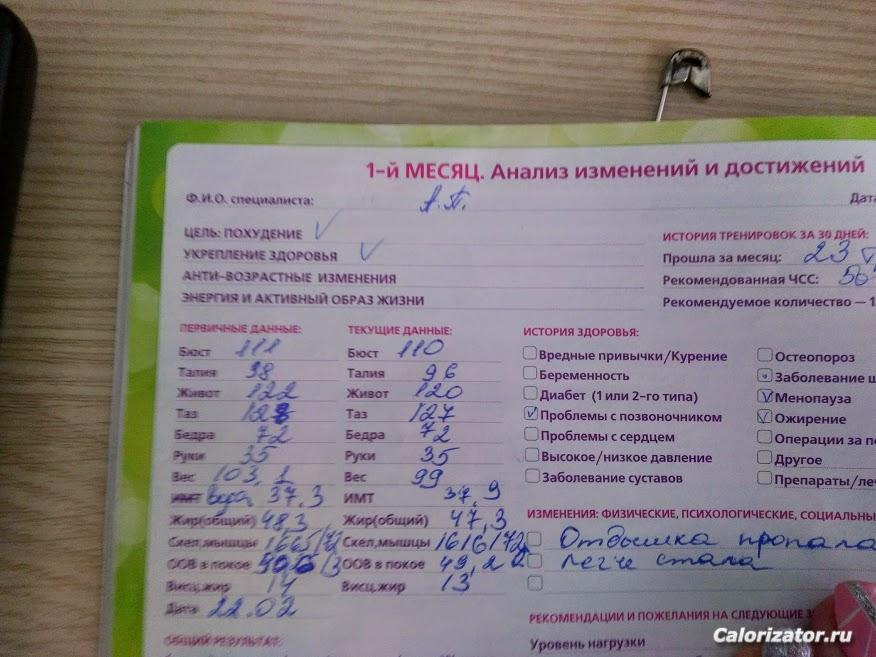 1-й МЕСЯЦ. Анализ изменений и достижений
Ф.И.О. специалиста: А.П.
Дата
ЦЕЛЬ: ПОХУДЕНИЕ
УКРЕПЛЕНИЕ ЗДОРОВЬЯ
АНТИ-ВОЗРАСТНЫЕ ИЗМЕНЕНИЯ
ЭНЕРГИЯ И АКТИВНЫЙ ОБРАЗ ЖИЗНИ
ИСТОРИЯ ТРЕНИРОВОК ЗА 30 ДНЕЙ:
Прошла за месяц: 23
Рекомендованная ЧСС:
Рекомендуемое количество — 1
ПЕРВИЧНЫЕ ДАННЫЕ:
Бюст 111
Талия 98
Живот 122
Таз 128
Бедра 72
Руки 35
Вес 103,1
ИМТ вода 37,3
Жир(общий) 48,3
Скел.мышцы
ООВ в покое
Висц.жир 14
Дата 22.02
ОБЩИЙ РЕЗУЛЬТАТ:
ТЕКУЩИЕ ДАННЫЕ:
Бюст 110
Талия 96
Живот 120
Таз 127
Бедра 72
Руки 35
Вес 99
ИМТ 37,9
Жир(общий) 47,3
Скел.мышцы 1616/72
ООВ в покое 49,2
Висц.жир 13
ИСТОРИЯ ЗДОРОВЬЯ:
Вредные привычки/Курение
Беременность
Диабет (1 или 2-го типа)
Проблемы с позвоночником
Проблемы с сердцем
Высокое/низкое давление
Заболевание суставов
Остеопороз
Заболевание щ
Менопауза
Ожирение
Операции за по
Другое
Препараты/ле
ИЗМЕНЕНИЯ: ФИЗИЧЕСКИЕ, ПСИХОЛОГИЧЕСКИЕ, СОЦИАЛЬНЫ
Отдышка пропала
легче стала
РЕКОМЕНДАЦИИ И ПОЖЕЛАНИЯ НА СЛЕДУЮЩИЕ
Уровень нагрузки
Calorizator.ru